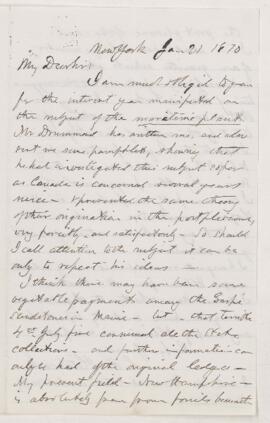 New York Jan 21 1870
My Dear Sir
I am much obliged to you
for the interest you manifested on
the subject of the maritime plants
Mr Drummond has written me, and also
sent me pamphlets, shewing that
he had investigated this subject as far
as Canada is concerned several years
since - & presented the same theory
of their origination in the postpliocene,
very forcibly and satisfactorily - So should
I call attention to the subject it can be
only to repeat his ideas -
I think there may have been some
vegetable fragments among the Gaspé
Sandstones in Maine - but - that
4th July fire consumed all the
collections - and further information can
only be had of the original ledges -
My present field - New Hampshire -
is absolutely free from fossils beneath